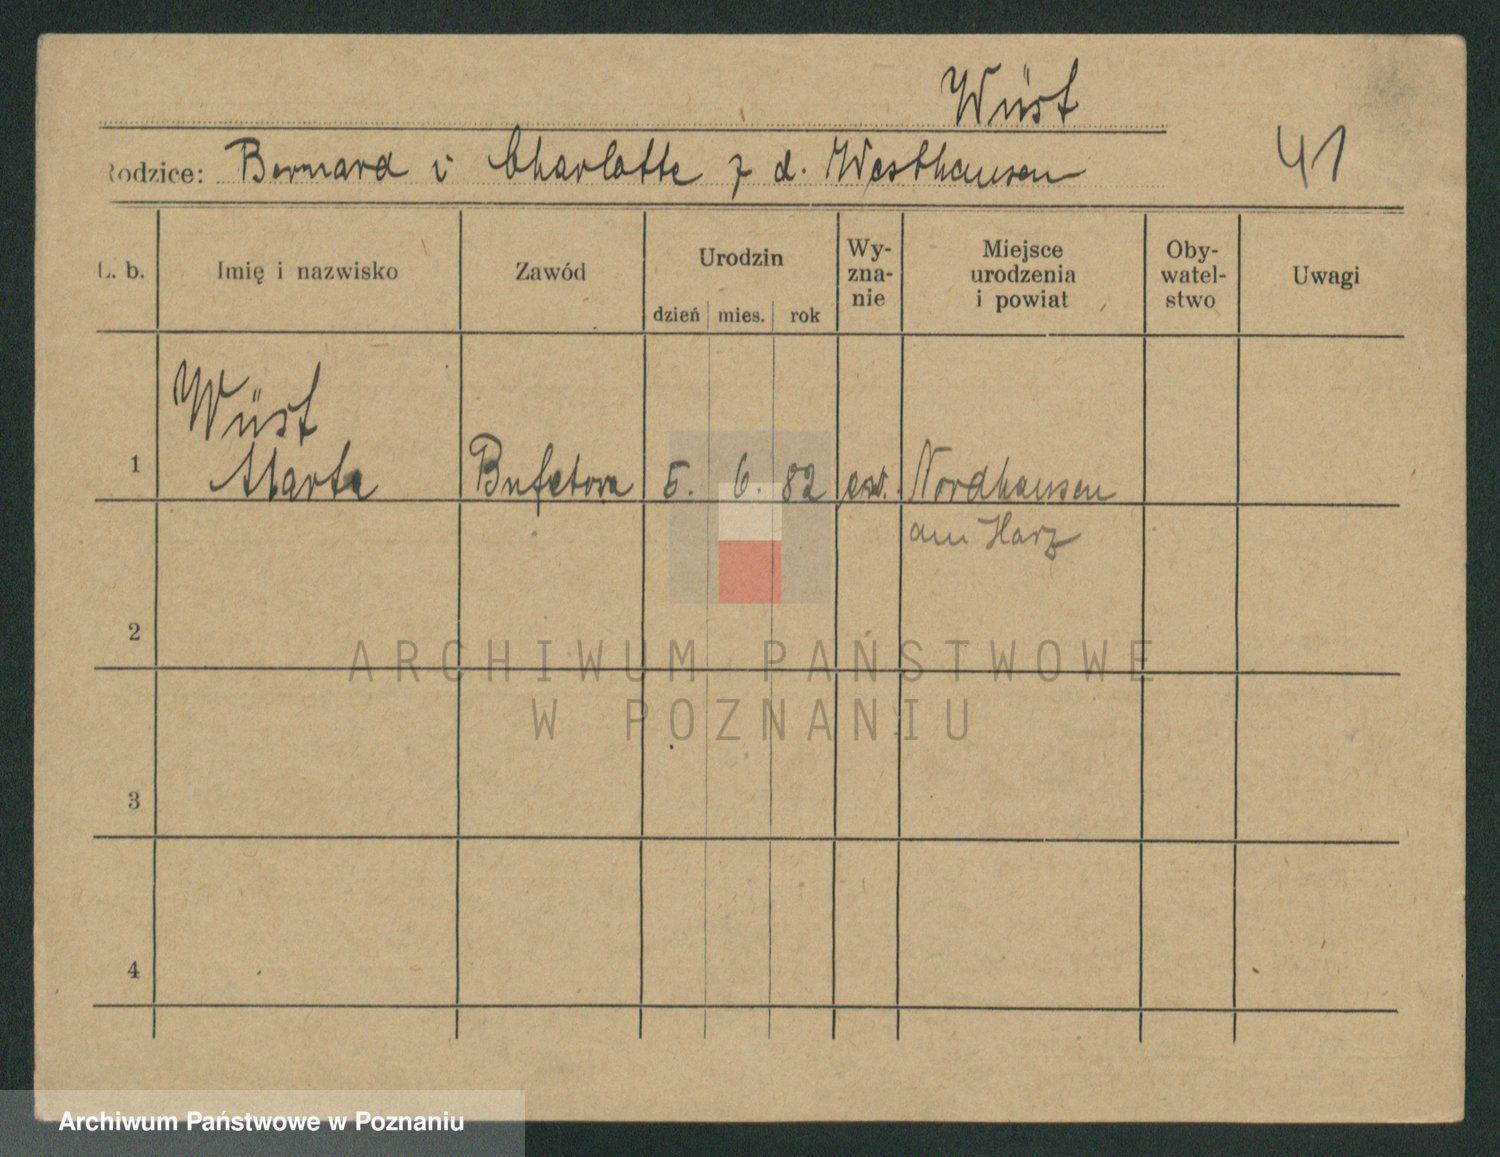 Wüst
Rodzice: Bernard i Charlotte z d. Westhausen
41
L. b.
Imię i nazwisko
Zawód
Urodzin
dzień mies. rok
Wy-
zna-
nie
Miejsce
urodzenia
i powiat
Oby-
watel-
stwo
Uwagi
Wüst
1 Marta Bufetowa 5. 6. 82 ew. Nordhausen
am Harz
2
3
4
ARCHIWUM PAŃSTWOWE
W POZNANIU
Archiwum Państwowe w Poznaniu